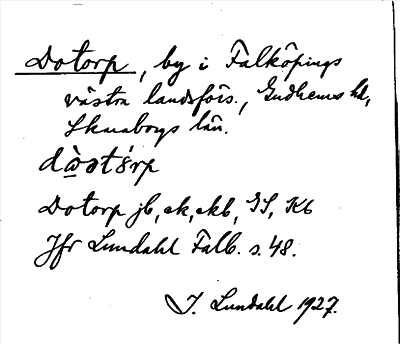 Dotorp, by i Falköpings
västra landsförs., Gudhems hd,
Skaraborgs län.
dòotǿrp
Dotorp jb, ek, ekb, GS, Kb
Jfr Lundahl Falb. s. 48.
I. Lundahl 1927.